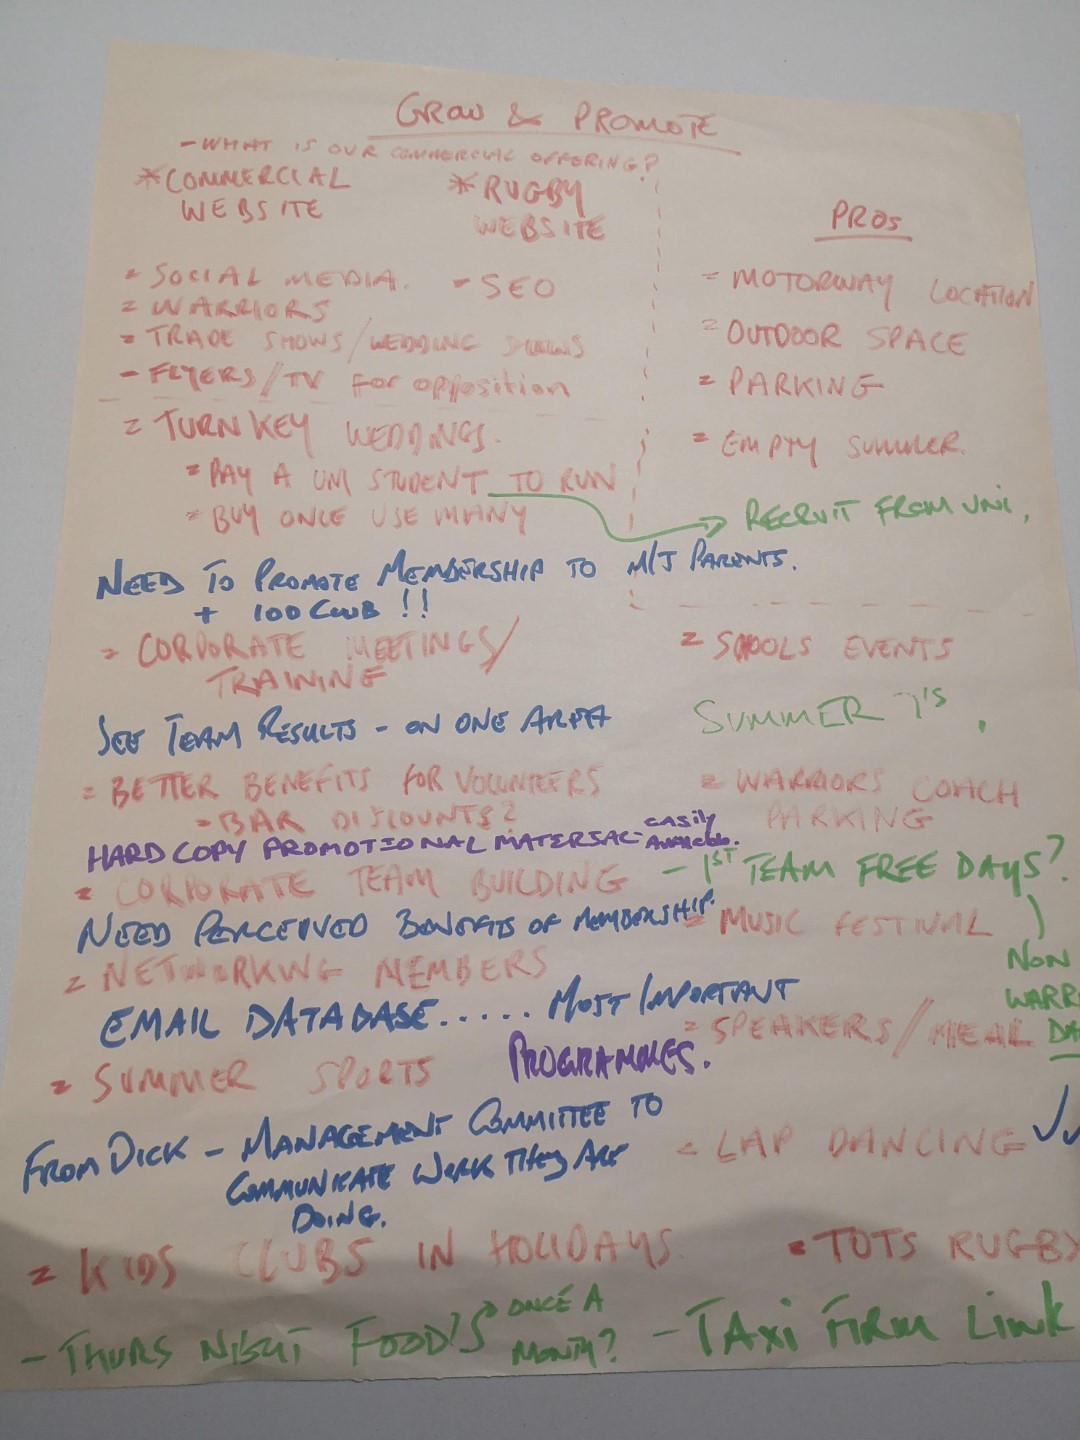 GROW & PROMOTE
- WHAT IS OUR COMMERCIAL OFFERING?
* COMMERCIAL WEBSITE
* RUGBY WEBSITE
PROS
- SOCIAL MEDIA. - SEO
- WARRIORS
- TRADE SHOWS/WEDDING SHOWS
- FLYERS/TV for opposition
= MOTORWAY LOCATION
= OUTDOOR SPACE
= PARKING
= EMPTY SUMMER.
= TURN KEY WEDDINGS.
= PAY A UNI STUDENT TO RUN
= BUY ONCE USE MANY
RECRUIT FROM UNI.
NEED TO PROMOTE MEMBERSHIP TO M/J PARENTS.
+ 100 CLUB !!
= CORPORATE MEETINGS/
TRAINING
= SCHOOLS EVENTS
SEE TEAM RESULTS - ON ONE AREA
SUMMER 7'S.
= BETTER BENEFITS FOR VOLUNTEERS
= BAR DISCOUNTS?
= WARRIORS COACH
PARKING
HARD COPY PROMOTIONAL MATERIAL - easily
Available.
= CORPORATE TEAM BUILDING
- 1ST TEAM FREE DAYS?
NEED PERCEIVED BENEFITS OF MEMBERSHIP.
= MUSIC FESTIVAL
NON
WARR
DA
= NETWORKING MEMBERS
EMAIL DATABASE...... MOST IMPORTANT
= SPEAKERS/MEAL
= SUMMER SPORTS
PROGRAMMES.
FROM DICK - MANAGEMENT COMMITTEE TO
COMMUNICATE WORK THEY ARE
DOING.
= LAP DANCING
= KIDS CLUBS IN HOLIDAYS.
= TOTS RUGBY
- THURS NIGHT FOOD'S ONCE A
MONTH?
- TAXI FIRM LINK